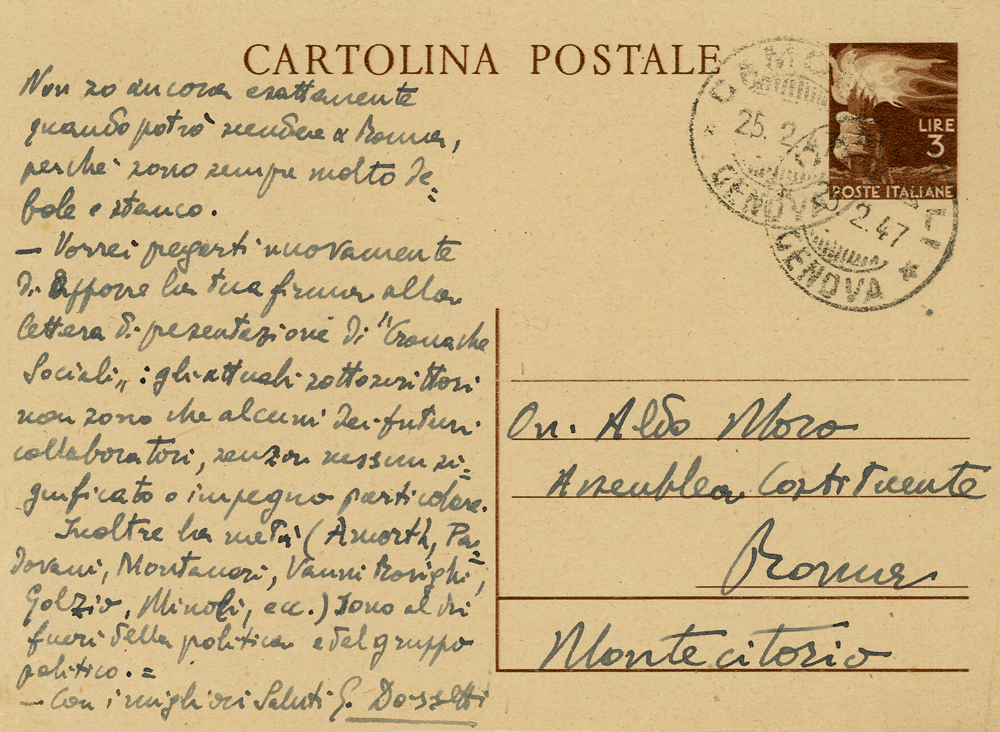 CARTOLINA POSTALE
CAMOGLI
25. 2
GENOVA
CAMOGLI
25. 2. 47
GENOVA
LIRE
3
POSTE ITALIANE
Non so ancora esattamente
quando potrò scendere a Roma,
perché sono sempre molto de=
bole e stanco.
— Vorrei pregarti nuovamente
di apporre la tua firma alla
lettera di presentazione di "Cronache
Sociali„: gli attuali sottoscrittori
non sono che alcuni dei futuri
collaboratori, senza nessun si=
gnificato o impegno particolare.
Inoltre la metà (Amorth, Pa=
dovani, Montanari, Vanni Rovighi,
Golzio, Minoli, ecc.) sono al di
fuori della politica e del gruppo
politico. =
— Con i migliori Saluti G. Dossetti
On. Aldo Moro
Assemblea Costituente
Roma
Montecitorio